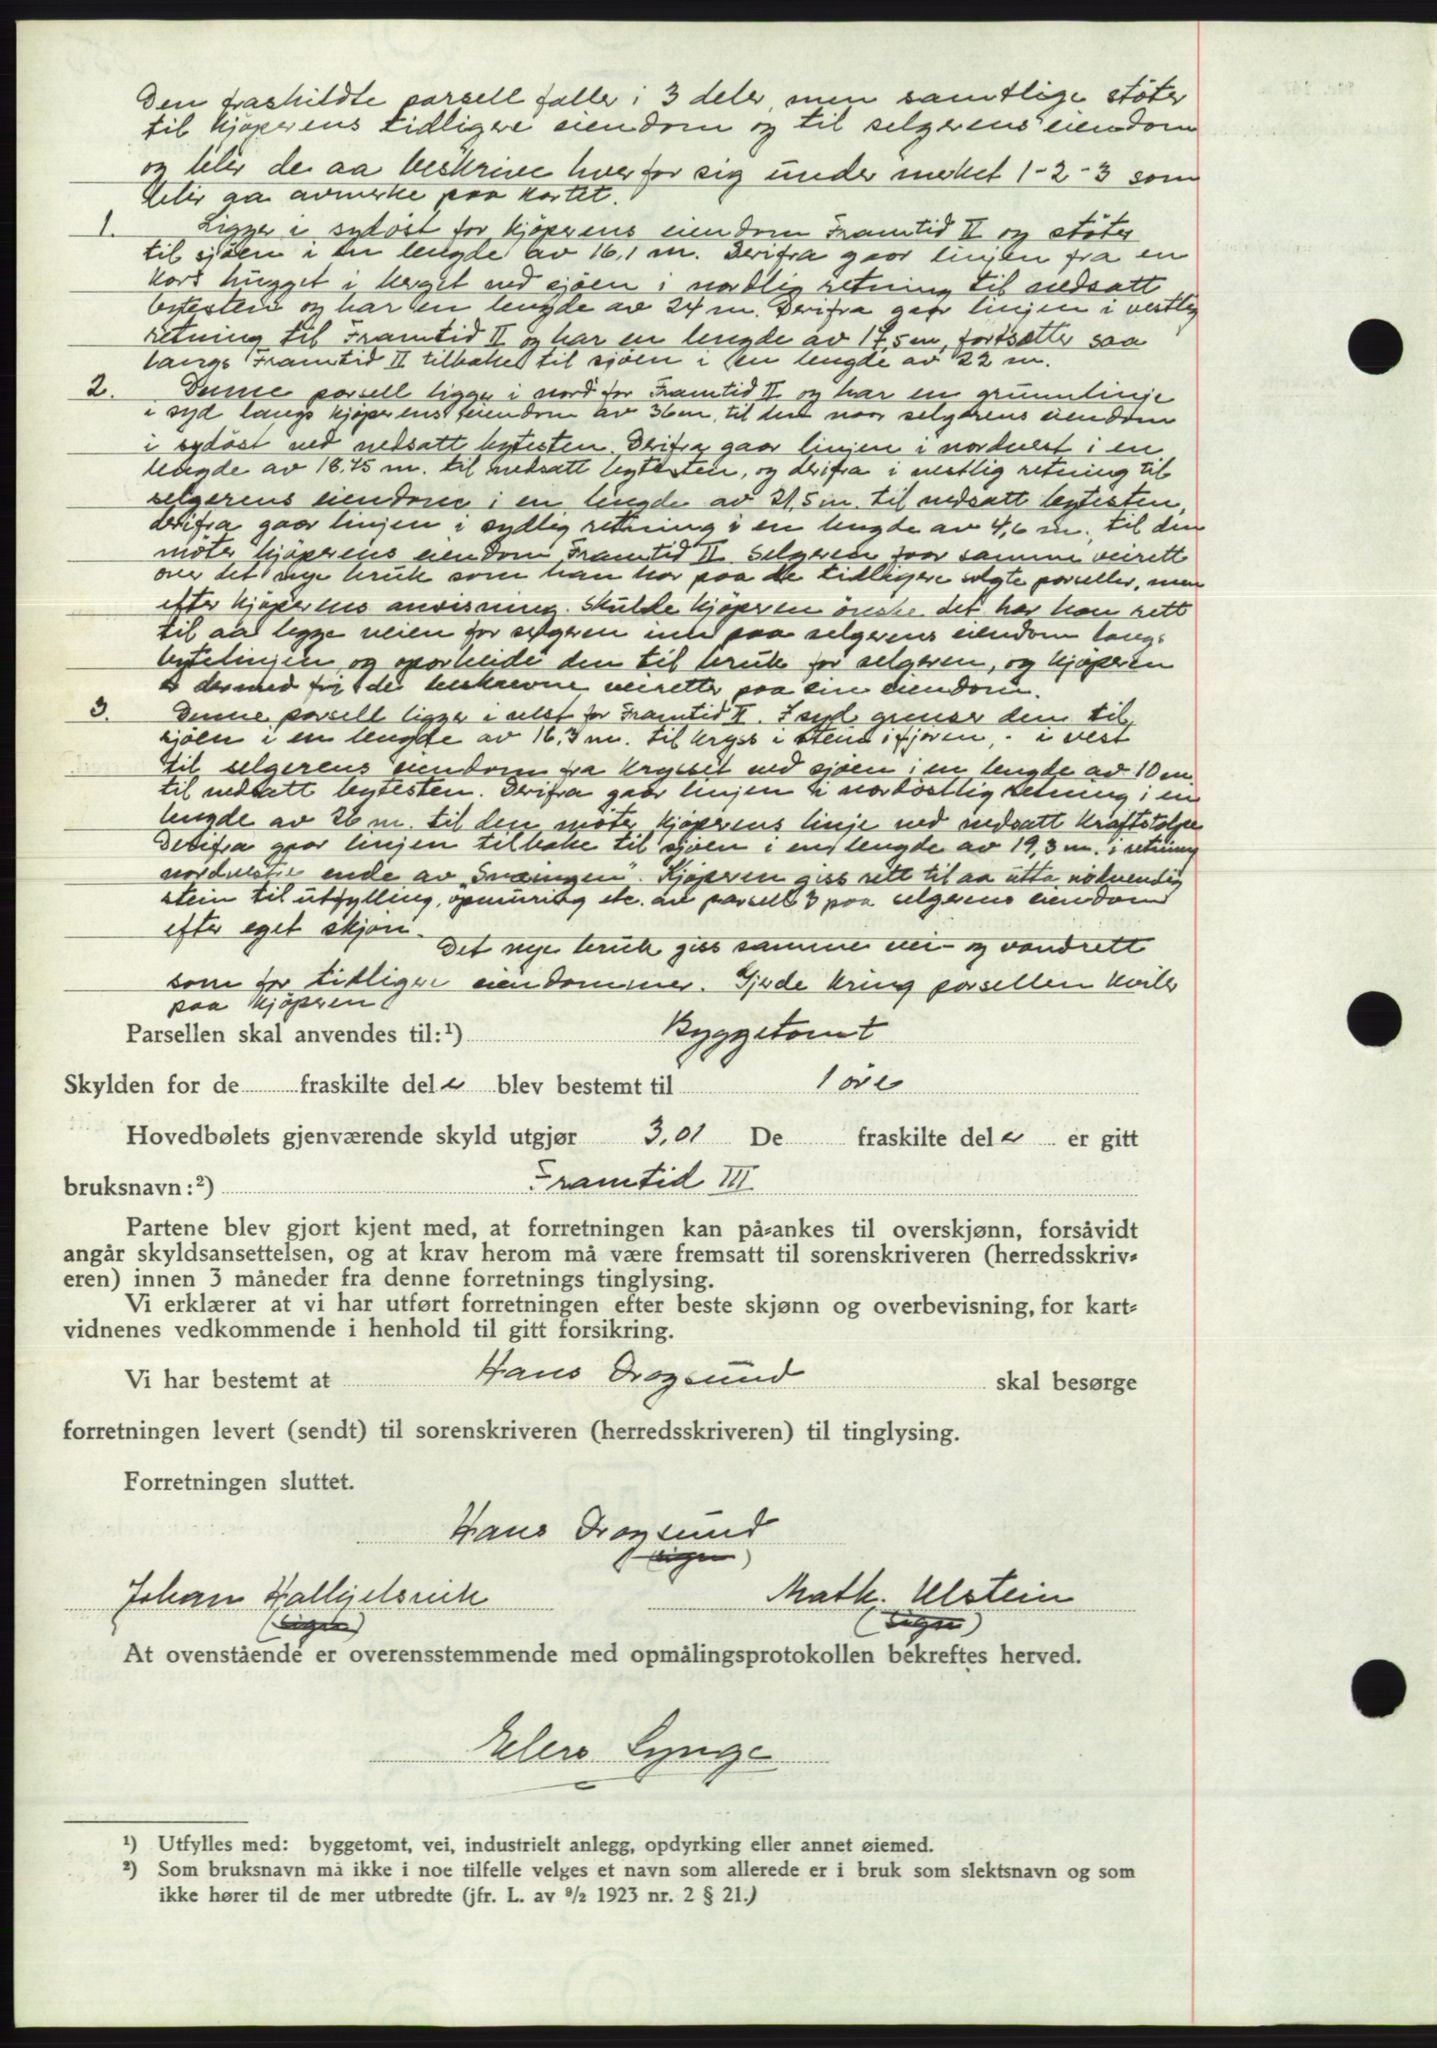 Den fraskildte parsell faller i 3 deler, men samtlige støter
til kjøperens tidligere eiendom og til selgerens eiendom
og blir de aa beskrive hver for sig under merket 1-2-3 som
blir aa avmerke paa kartet.
1. Ligger i sydøst for kjøperens eiendom Framtid II og støter
til sjøen i en lengde av 16,1 m. Derifra gaar linjen fra en
kors hugget i berget ved sjøen i nordlig retning til nedsatt
bytesten og har en lengde av 24 m. Derifra gaar linjen i vestlig
retning til Framtid II og har en lengde av 17,5 m, fortsetter saa
langs Framtid II tilbake til sjøen i en lengde av 22 m.
2. Denne parsell ligger i nord for Framtid II og har en grunnlinje
i syd langs kjøperens eiendom av 36 m, til den naar selgerens eiendom
i sydøst ved nedsatt bytesten. Derifra gaar linjen i nordvest i en
lengde av 18.75 m. til nedsatt bytesten, og derifra i vestlig retning til
selgerens eiendom i en lengde av 21,5 m. til nedsatt bytesten,
derifra gaar linjen i sydlig retning i en lengde av 4,6 m. til den
møter kjøperens eiendom Framtid II. Selgeren faar samme veirett
over det nye bruk som han har paa de tidligere solgte parseller, men
efter kjøperens anvisning. Skulde kjøperen ønske det har han rett
til aa legge veien for selgeren inn paa selgerens eiendom langs
bytelinjen og oparbeide den til bruk for selgeren, og kjøperen
er dermed fri de beskrevne veiretter paa sin eiendom.
3. Denne parsell ligger i vest for Framtid II. I syd grenser den til
sjøen i en lengde av 16,3 m. til kryss i stein i fjøren, - i vest
til selgerens eiendom fra krysset ved sjøen i en lengde av 10 m.
til nedsatt bytesten. Derifra gaar linjen i nordøstlig retning i en
lengde av 26 m. til den møter kjøperens linje ved nedsatt kraftstolpe
Derifra gaar linjen tilbake til sjøen i en lengde av 19,3 m. i retning
nordvestre ende av "Svaingen". Kjøperen giss rett til aa utta nødvendig
stein til utfylling, opmuring etc. av parsell 3 paa selgerens eiendom
efter eget skjøn.
Det nye bruk giss samme vei- og vandrett
som for tidligere eiendommer. Gjerde kring parsellen kviler
paa kjøperen
Parsellen skal anvendes til:¹) Byggetomt
Skylden for de fraskilte del er blev bestemt til 1 øre
Hovedbølets gjenværende skyld utgjør 3,01 De fraskilte del er er gitt
bruksnavn:²) Framtid III
Partene blev gjort kjent med, at forretningen kan på-ankes til overskjønn, forsåvidt
angår skyldsansettelsen, og at krav herom må være fremsatt til sorenskriveren (herredsskriv-
eren) innen 3 måneder fra denne forretnings tinglysing.
Vi erklærer at vi har utført forretningen efter beste skjønn og overbevisning, for kart-
vidnenes vedkommende i henhold til gitt forsikring.
Vi har bestemt at Hans Dragsund skal besørge
forretningen levert (sendt) til sorenskriveren (herredsskriveren) til tinglysing.
Forretningen sluttet.
Hans Dragsund
(sign)
Johan Hatlyelsvik Math. Ulstein
(sign) (sign)
At ovenstående er overensstemmende med opmålingsprotokollen bekreftes herved.
Elers Lynge
¹) Utfylles med: byggetomt, vei, industrielt anlegg, opdyrking eller annet øiemed.
²) Som bruksnavn må ikke i noe tilfelle velges et navn som allerede er i bruk som slektsnavn og som
ikke hører til de mer utbredte (jfr. L. av ⁹/₂ 1923 nr. 2 § 21.)